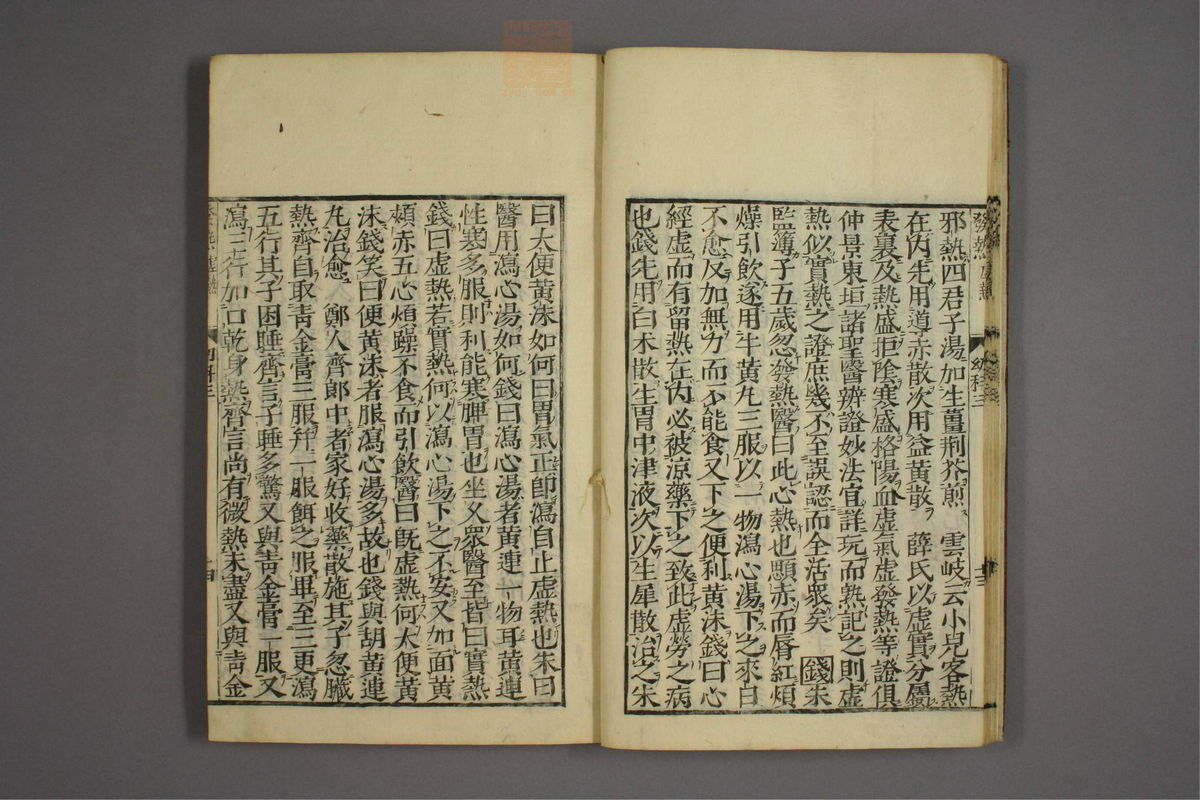 發熱 虛熱 幼科三 十三
邪熱四君子湯加生薑荆芥煎 雲岐云小兒客熱
在内先用導赤散次用益黃散 薛氏以虛實分屬
表裏及熱盛拒陰寒盛格陽血虛氣虛發熱等證俱
仲景東垣諸聖醫辨證妙法宜詳玩而熟記之則虛
熱似實熱之證庶幾不至誤認而全活衆矣 錢朱
監簿子五歲忽發熱醫曰此心熱也顋赤而唇紅煩
燥引飲遂用牛黃丸三服以一物瀉心湯下之來日
不愈反加無力而不能食又下之便利黃沫錢曰心
經虛而有留熱在内必被涼藥下之致此虛勞之病
也錢先用白朮散生胃中津液次以生犀散治之朱
曰大便黃沫如何曰胃氣正卽瀉自止虛熱也朱曰
醫用瀉心湯如何錢曰瀉心湯者黃連一物耳黃連
性寒多服則利能寒脾胃也坐乂衆醫至皆曰實熱
錢曰虛熱若實熱何以瀉心湯下之不安又加面黃
頰赤五心煩躁不食而引飲醫曰旣虛熱何大便黃
沫錢笑曰便黃沫者服瀉心湯多故也錢與胡黃連
丸治愈 鄭人齊郎中者家好收藥散施其子忽臟
熱齊自取青金膏三服幷一服餌之服畢至三更瀉
五行其子困睡齊言子睡多驚又與青金膏一服又
瀉三行加口乾身熱齊言尚有微熱未盡又與青金
虛熱 幼科三 十四